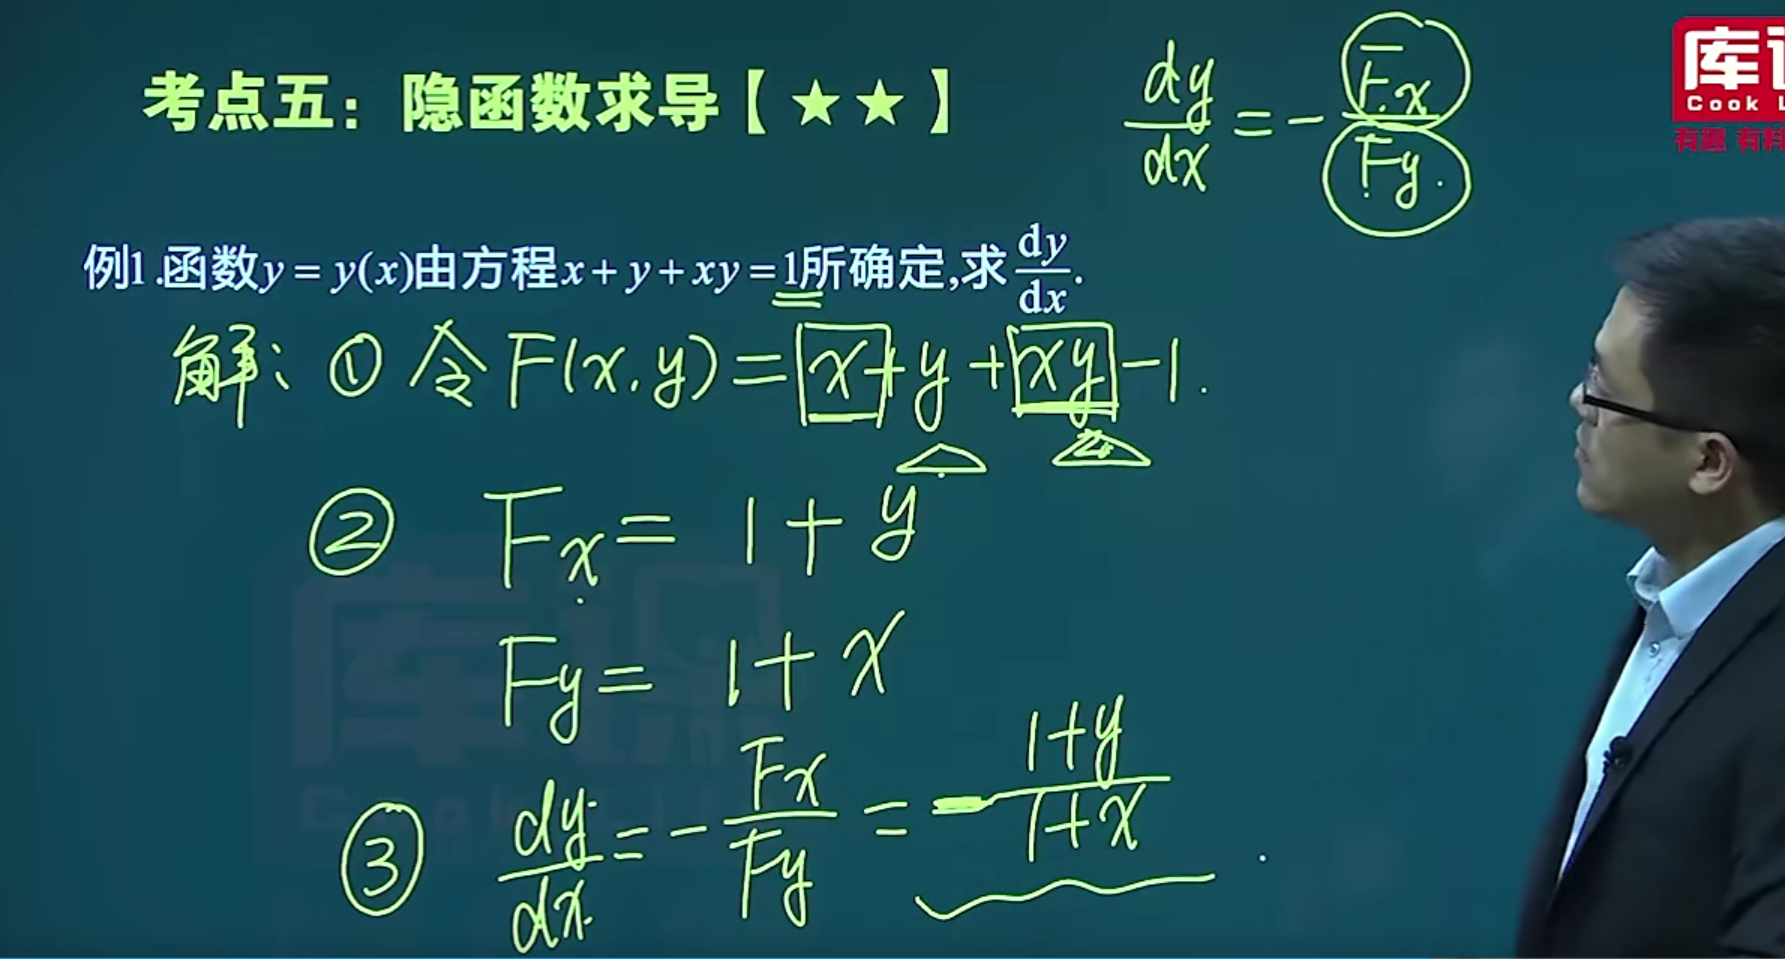 考点五：隐函数求导【★★】
dy/dx = - Fx/Fy.
库
Cook
有趣 有料
例1.函数y = y(x)由方程x + y + xy = 1所确定,求dy/dx.
解：① 令 F(x,y) = x + y + xy - 1.
② Fx = 1 + y
Fy = 1 + x
③ dy/dx = - Fx/Fy = - 1+y/1+x